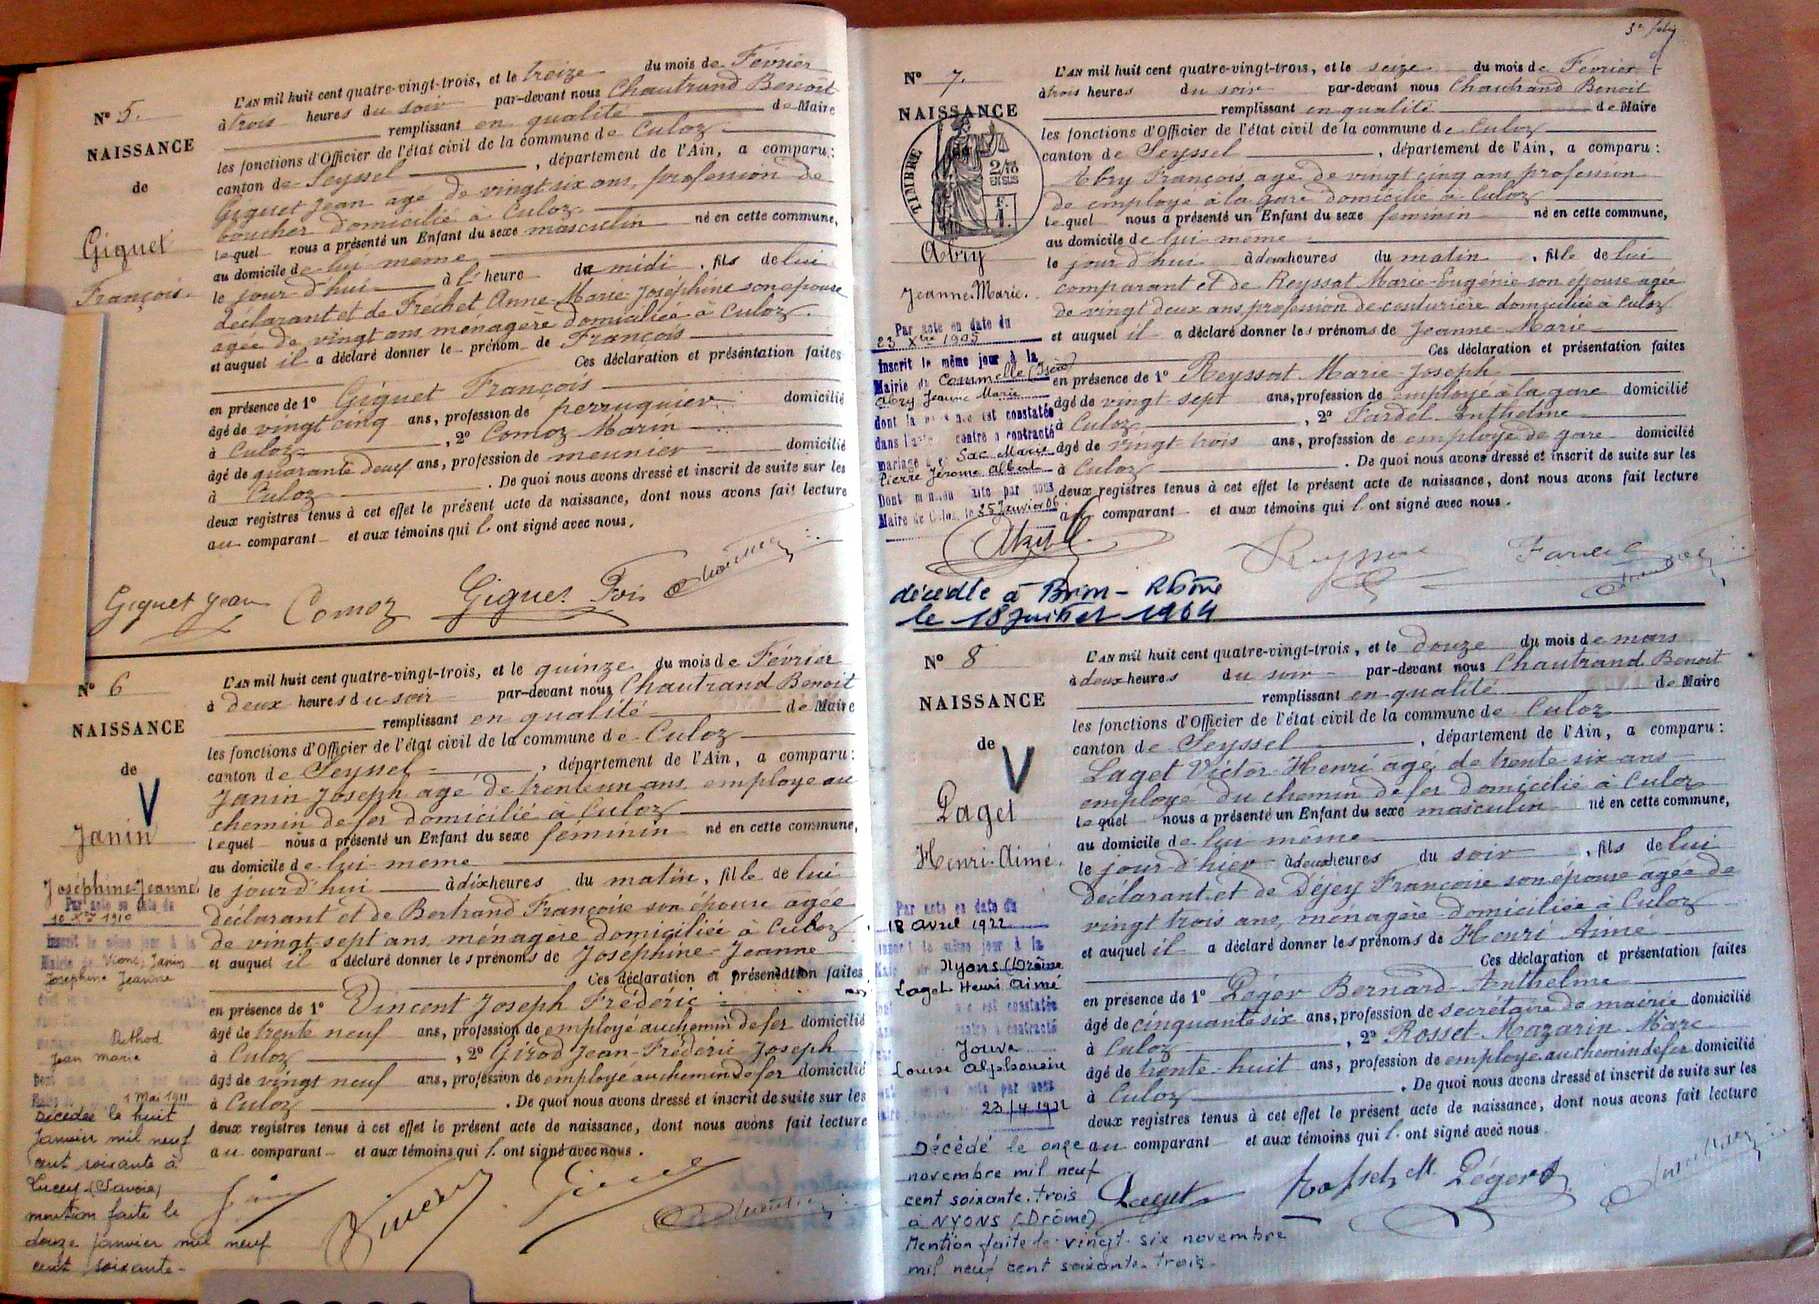 Nº 5.
NAISSANCE
de
Giguet
François.
L'AN mil huit cent quatre-vingt-trois, et le treize du mois de Février
à trois heures du soir par-devant nous Chautrand Benoit
remplissant en qualité de Maire
les fonctions d'Officier de l'état civil de la commune de Culoz
canton de Seyssel, département de l'Ain, a comparu:
Giguet Jean agé de vingt six ans, profession de
boucher domicilié à Culoz.
lequel nous a présenté un Enfant du sexe masculin né en cette commune,
au domicile de lui meme
le jour d'hui à l' heure du midi, fils de lui
déclarant et de Fréchet Anne-Marie Joséphine son épouse
agée de vingt ans, ménagère domiciliée à Culoz.
et auquel il a déclaré donner le prénom de François
Ces déclaration et présentation faites
en présence de 1º Giguet François
âgé de vingt cinq ans, profession de perruquier domicilié
à Culoz, 2º Comoz Marin
âgé de quarante deux ans, profession de meunier domicilié
à Culoz. De quoi nous avons dressé et inscrit de suite sur les
deux registres tenus à cet effet le présent acte de naissance, dont nous avons fait lecture
au comparant et aux témoins qui l'ont signé avec nous.
Giguet Jean Comoz Giguet Fois
Nº 6
NAISSANCE
de
V
Janin
Joséphine-Jeanne
Par acte en date du
10 Xbre 1910
Inscrit le même jour à la
Mairie de Vions, Janin
Joséphine Jeanne
Jean Marie
1 Mai 1911
Décédée le huit
Janvier mil neuf
cent soixante à
Lucey (Savoie)
mention faite le
douze janvier mil neuf
cent soixante-
L'AN mil huit cent quatre-vingt-trois, et le quinze du mois de Février
à deux heures du soir par-devant nous Chautrand Benoit
remplissant en qualité de Maire
les fonctions d'Officier de l'état civil de la commune de Culoz
canton de Seyssel, département de l'Ain, a comparu:
Janin Joseph agé de trente un ans, employé au
chemin de fer domicilié à Culoz
lequel nous a présenté un Enfant du sexe féminin né en cette commune,
au domicile de lui-meme
le jour d'hui à dix heures du matin, fille de lui
déclarant et de Bertrand Françoise son épouse agée
de vingt sept ans, ménagère domiciliée à Culoz
et auquel il a déclaré donner les prénoms de Joséphine-Jeanne
Ces déclaration et présentation faites
en présence de 1º Vincent Joseph Fréderic
âgé de trente neuf ans, profession de employé au chemin de fer domicilié
à Culoz, 2º Girod Jean-Fréderic Joseph
âgé de vingt neuf ans, profession de employé au chemin de fer domicilié
à Culoz. De quoi nous avons dressé et inscrit de suite sur les
deux registres tenus à cet effet le présent acte de naissance, dont nous avons fait lecture
au comparant et aux témoins qui l'ont signé avec nous.
Nº 7.
NAISSANCE
TIMBRE
2/10
EN SUS
Abry
Jeanne-Marie.
Par acte en date du
23 Xbre 1905
Inscrit le même jour à la
Mairie de
Abry Jeanne Marie
dont la est constatée
dans l'acte contre a contracté
mariage
Pierre Jérome Albert
Dont mention faite par nous
Maire de Culoz, le 25 Janvier 06
L'AN mil huit cent quatre-vingt-trois, et le seize du mois de Février
à trois heures du soir par-devant nous Chautrand Benoit
remplissant en qualité de Maire
les fonctions d'Officier de l'état civil de la commune de Culoz
canton de Seyssel, département de l'Ain, a comparu:
Abry François, agé de vingt cinq ans, profession
de employé à la gare domicilié à Culoz
lequel nous a présenté un Enfant du sexe féminin né en cette commune,
au domicile de lui meme
le jour d'hui à deux heures du matin, fille de lui
comparant et de Reyssat Marie-Eugénie son épouse agée
de vingt deux ans, profession de couturière domiciliée à Culoz
et auquel il a déclaré donner les prénoms de Jeanne-Marie
Ces déclaration et présentation faites
en présence de 1º Reyssat Marie-Joseph
âgé de vingt sept ans, profession de employé à la gare domicilié
à Culoz, 2º Fardel Anthelme
âgé de vingt trois ans, profession de employé de gare domicilié
à Culoz. De quoi nous avons dressé et inscrit de suite sur les
deux registres tenus à cet effet le présent acte de naissance, dont nous avons fait lecture
au comparant et aux témoins qui l'ont signé avec nous.
décédée à Bron - Rhône
le 18 Juillet 1964
Nº 8
NAISSANCE
de
V
Laget
Henri-Aimé.
Par acte en date du
18 avril 1922
Nyons (Drôme
Laget Henri Aimé
Jouve
Louise Alphonsine
23/4 1922
Décédé le onze
novembre mil neuf
cent soixante-trois
à NYONS (Drôme)
Mention faite le vingt-six novembre
mil neuf cent soixante-trois.
L'AN mil huit cent quatre-vingt-trois, et le douze du mois de mars
à deux heures du soir par-devant nous Chautrand Benoit
remplissant en qualité de Maire
les fonctions d'Officier de l'état civil de la commune de Culoz
canton de Seyssel, département de l'Ain, a comparu:
Laget Victor-Henri agé de trente six ans
employé du chemin de fer domicilié à Culoz
lequel nous a présenté un Enfant du sexe masculin né en cette commune,
au domicile de lui même
le jour d'hier à deux heures du soir, fils de lui
déclarant et de Déjey Françoise son épouse agée de
vingt trois ans, ménagère domiciliée à Culoz
et auquel il a déclaré donner les prénoms de Henri Aimé
Ces déclaration et présentation faites
en présence de 1º Légor Bernard Anthelme
âgé de cinquante six ans, profession de secrétaire de mairie domicilié
à Culoz, 2º Rosset Mazarin Marc
âgé de trente-huit ans, profession de employé au chemin de fer domicilié
à Culoz. De quoi nous avons dressé et inscrit de suite sur les
deux registres tenus à cet effet le présent acte de naissance, dont nous avons fait lecture
au comparant et aux témoins qui l'ont signé avec nous